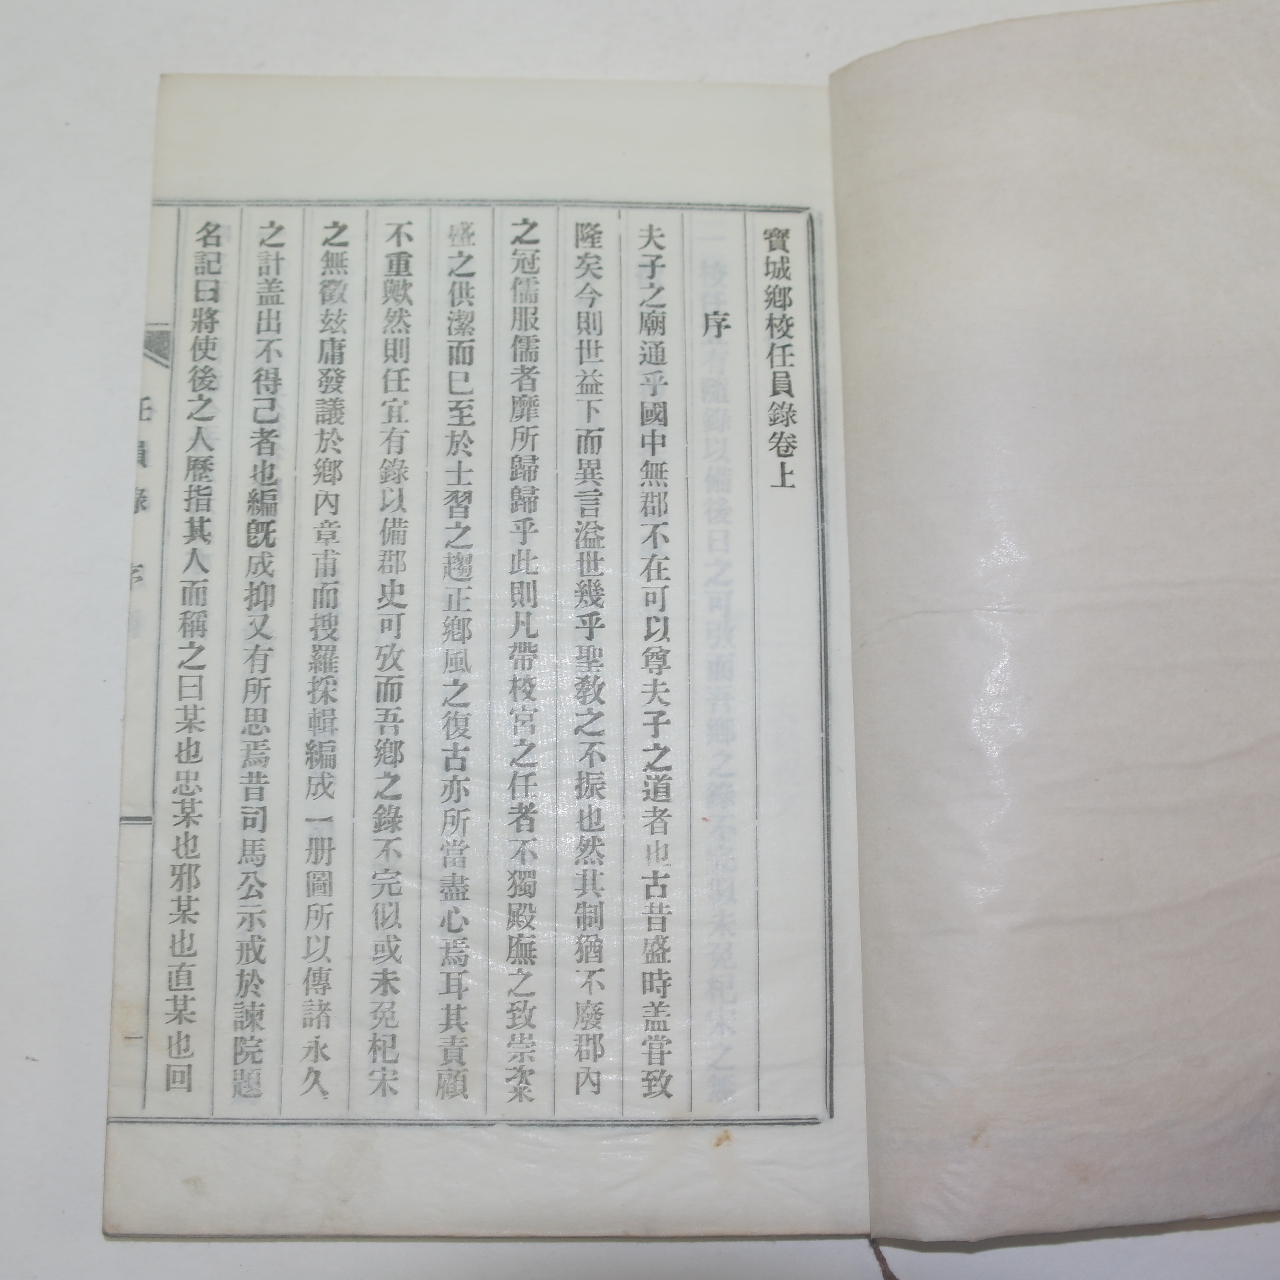 寶城鄕校任員錄卷上
序
夫子之廟通乎國中無郡不在可以尊夫子之道者也古昔盛時盖甞致
隆矣今則世益下而異言溢世幾乎聖敎之不振也然其制猶不廢郡內
之冠儒服儒者靡所歸歸乎此則凡帶校宮之任者不獨殿廡之致崇粢
盛之供潔而已至於士習之趨正鄕風之復古亦所當盡心焉耳其責顧
不重歟然則任宜有錄以備郡史可攷而吾鄕之錄不完似或未免杞宋
之無徵玆庸發議於鄕內章甫而搜羅採輯編成一册圖所以傳諸永久
之計盖出不得已者也編旣成抑又有所思焉昔司馬公示戒於諫院題
名記曰將使後之人歷指其人而稱之曰某也忠某也邪某也直某也回
任員錄 序 一